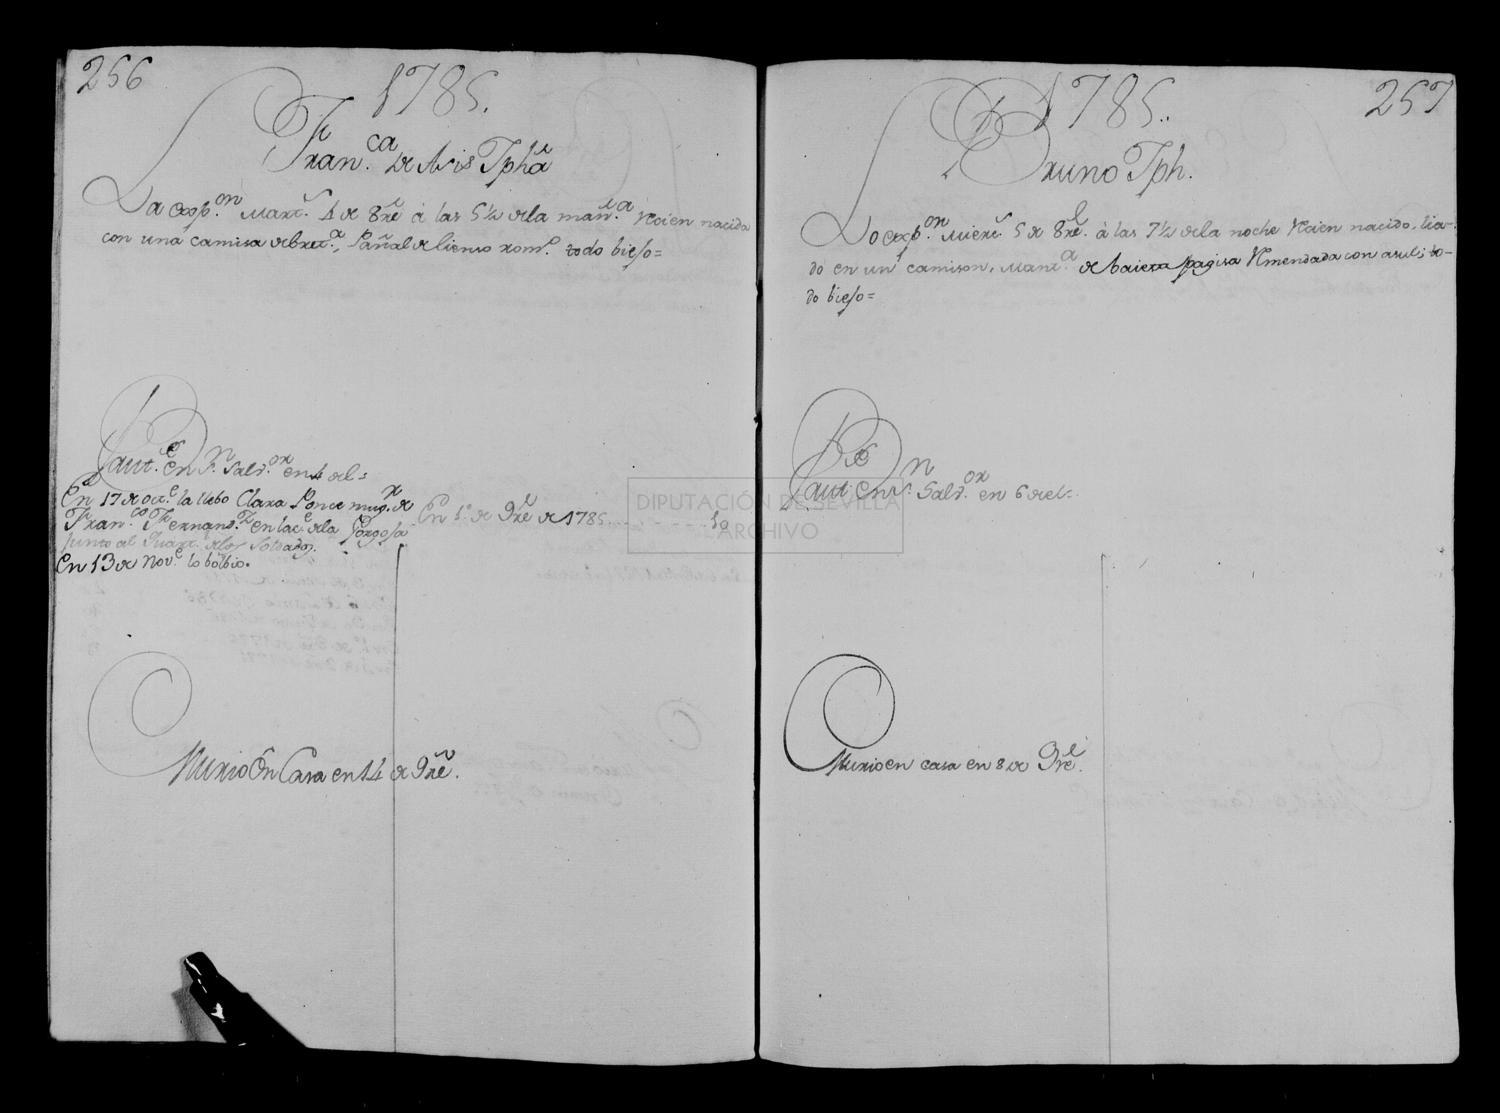 256
1785.
Fran.ca de Asis Tpha
La exp.on Mart.s 4 de 8re à las 5½ de la mañ.a Recien nacida
con una camisa de bret.a, Pañal de lienso rom.o todo biejo=
Baut.e en S.n Salv.or en 4 del=
En 17 de oct.e la llebo Clara Ponce mug.r de
Fran.co Fernand.z en la c.e de la Gorgoja
junto al Quart.l de los Soldados.
En 13 de Nov.e lo bolbio.
En 1.o de 9re de 1785 10
Murio En Casa en 14 de 9re.
1785.
257
Bruno Tph.
Lo exp.on Mierc.s 5 de 8re. à las 7½ de la noche Recien nacido, lia-
do en un camison, Mant.a de baieta pagisa Rmendada con asul; to-
do biejo=
Baut.e en S.n Salv.or en 6 del=
Murio en casa en 8 de 9re.
DIPUTACIÓN DE SEVILLA
ARCHIVO